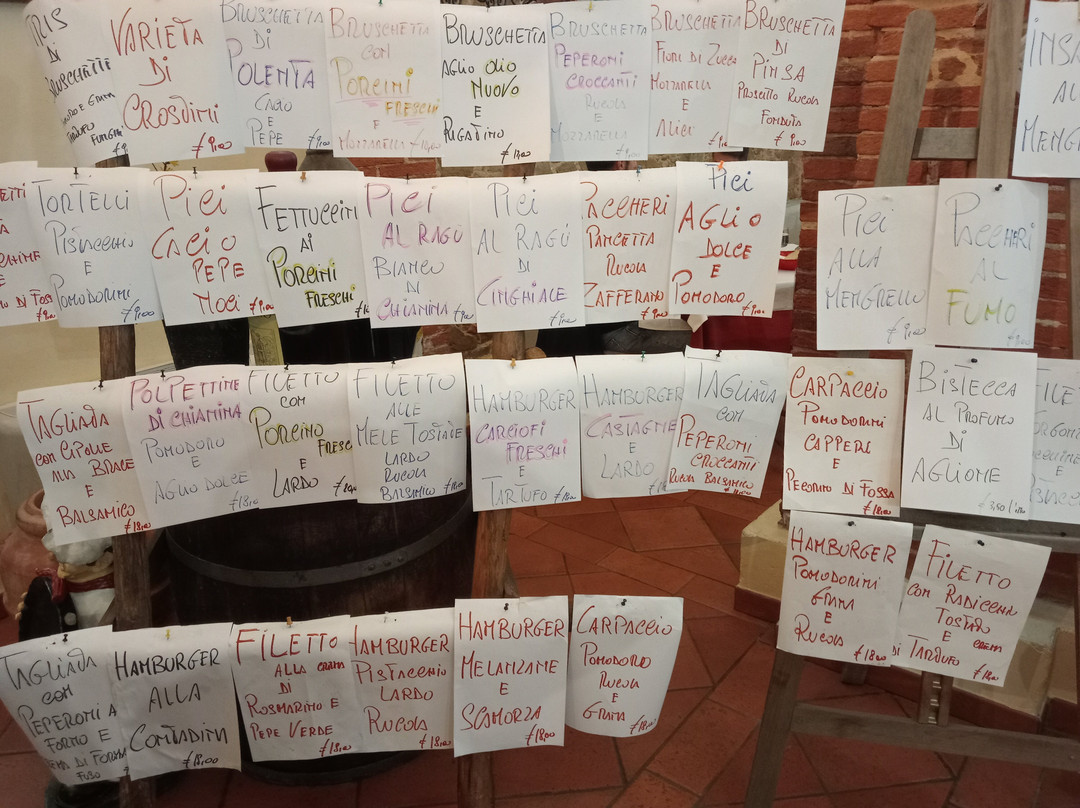 TRIS
DI
BRUSCHETTE
VARIETÀ
DI
CROSTINI
€ 9,00
BRUSCHETTA
DI
POLENTA
CACIO
E
PEPE
BRUSCHETTA
CON
PORCINI
FRESCHI
E
MOZZARELLA
BRUSCHETTA
AGLIO OLIO
NUOVO
E
RIGATINO
BRUSCHETTA
PEPERONI
CROCCANTI
RUCOLA
E
MOZZARELLA
BRUSCHETTA
FIORI DI ZUCCA
MOZZARELLA
E
ALICI
BRUSCHETTA
DI
PINSA
PROSCIUTTO RUCOLA
FONDUTA
€ 9,00
TORTELLI
PISTACCHIO
E
POMODORINI
€ 9,00
PICI
CACIO
PEPE
NOCI
€ 9,00
FETTUCCINE
AI
PORCINI
FRESCHI
PICI
AL RAGÙ
BIANCO
DI
CHIANINA
€ 9,00
PICI
AL RAGÙ
DI
CINGHIALE
€ 9,00
PACCHERI
PANCETTA
RUCOLA
E
ZAFFERANO
PICI
AGLIO
DOLCE
E
POMODORO
€ 9,00
PICI
ALLA
MENGRELLO
€ 9,00
PACCHERI
AL
FUMO
€ 9,00
TAGLIATA
CON CIPOLLE
ALLA BRACE
E
BALSAMICO
€ 18,00
POLPETTINE
DI CHIANINA
POMODORO
E
AGLIO DOLCE
€ 18,00
FILETTO
CON
PORCINO
FRESCO
E
LARDO
FILETTO
ALLE
MELE TOSTATE
LARDO
RUCOLA
BALSAMICO
HAMBURGER
CARCIOFI
FRESCHI
E
TARTUFO
€ 18,00
HAMBURGER
CASTAGNE
E
LARDO
TAGLIATA
CON
PEPERONI
CROCCANTI
RUCOLA BALSAMICO
CARPACCIO
POMODORINI
CAPPERI
E
PECORINO DI FOSSA
€ 18,00
BISTECCA
AL PROFUMO
DI
AGLIONE
HAMBURGER
POMODORINI
GRANA
E
RUCOLA
€ 18,00
FILETTO
CON RADICCHIO
TOSTATO
E CREMA
DI TARTUFO
€ 18,00
TAGLIATA
CON
PEPERONI AL
FORNO E
HAMBURGER
ALLA
CONTADINA
€ 18,00
FILETTO
ALLA CREMA
DI
ROSMARINO E
PEPE VERDE
€ 18,00
HAMBURGER
PISTACCHIO
LARDO
E
RUCOLA
€ 18,00
HAMBURGER
MELANZANE
E
SCAMORZA
€ 18,00
CARPACCIO
POMODORO
RUCOLA
E
GRANA
€ 18,00